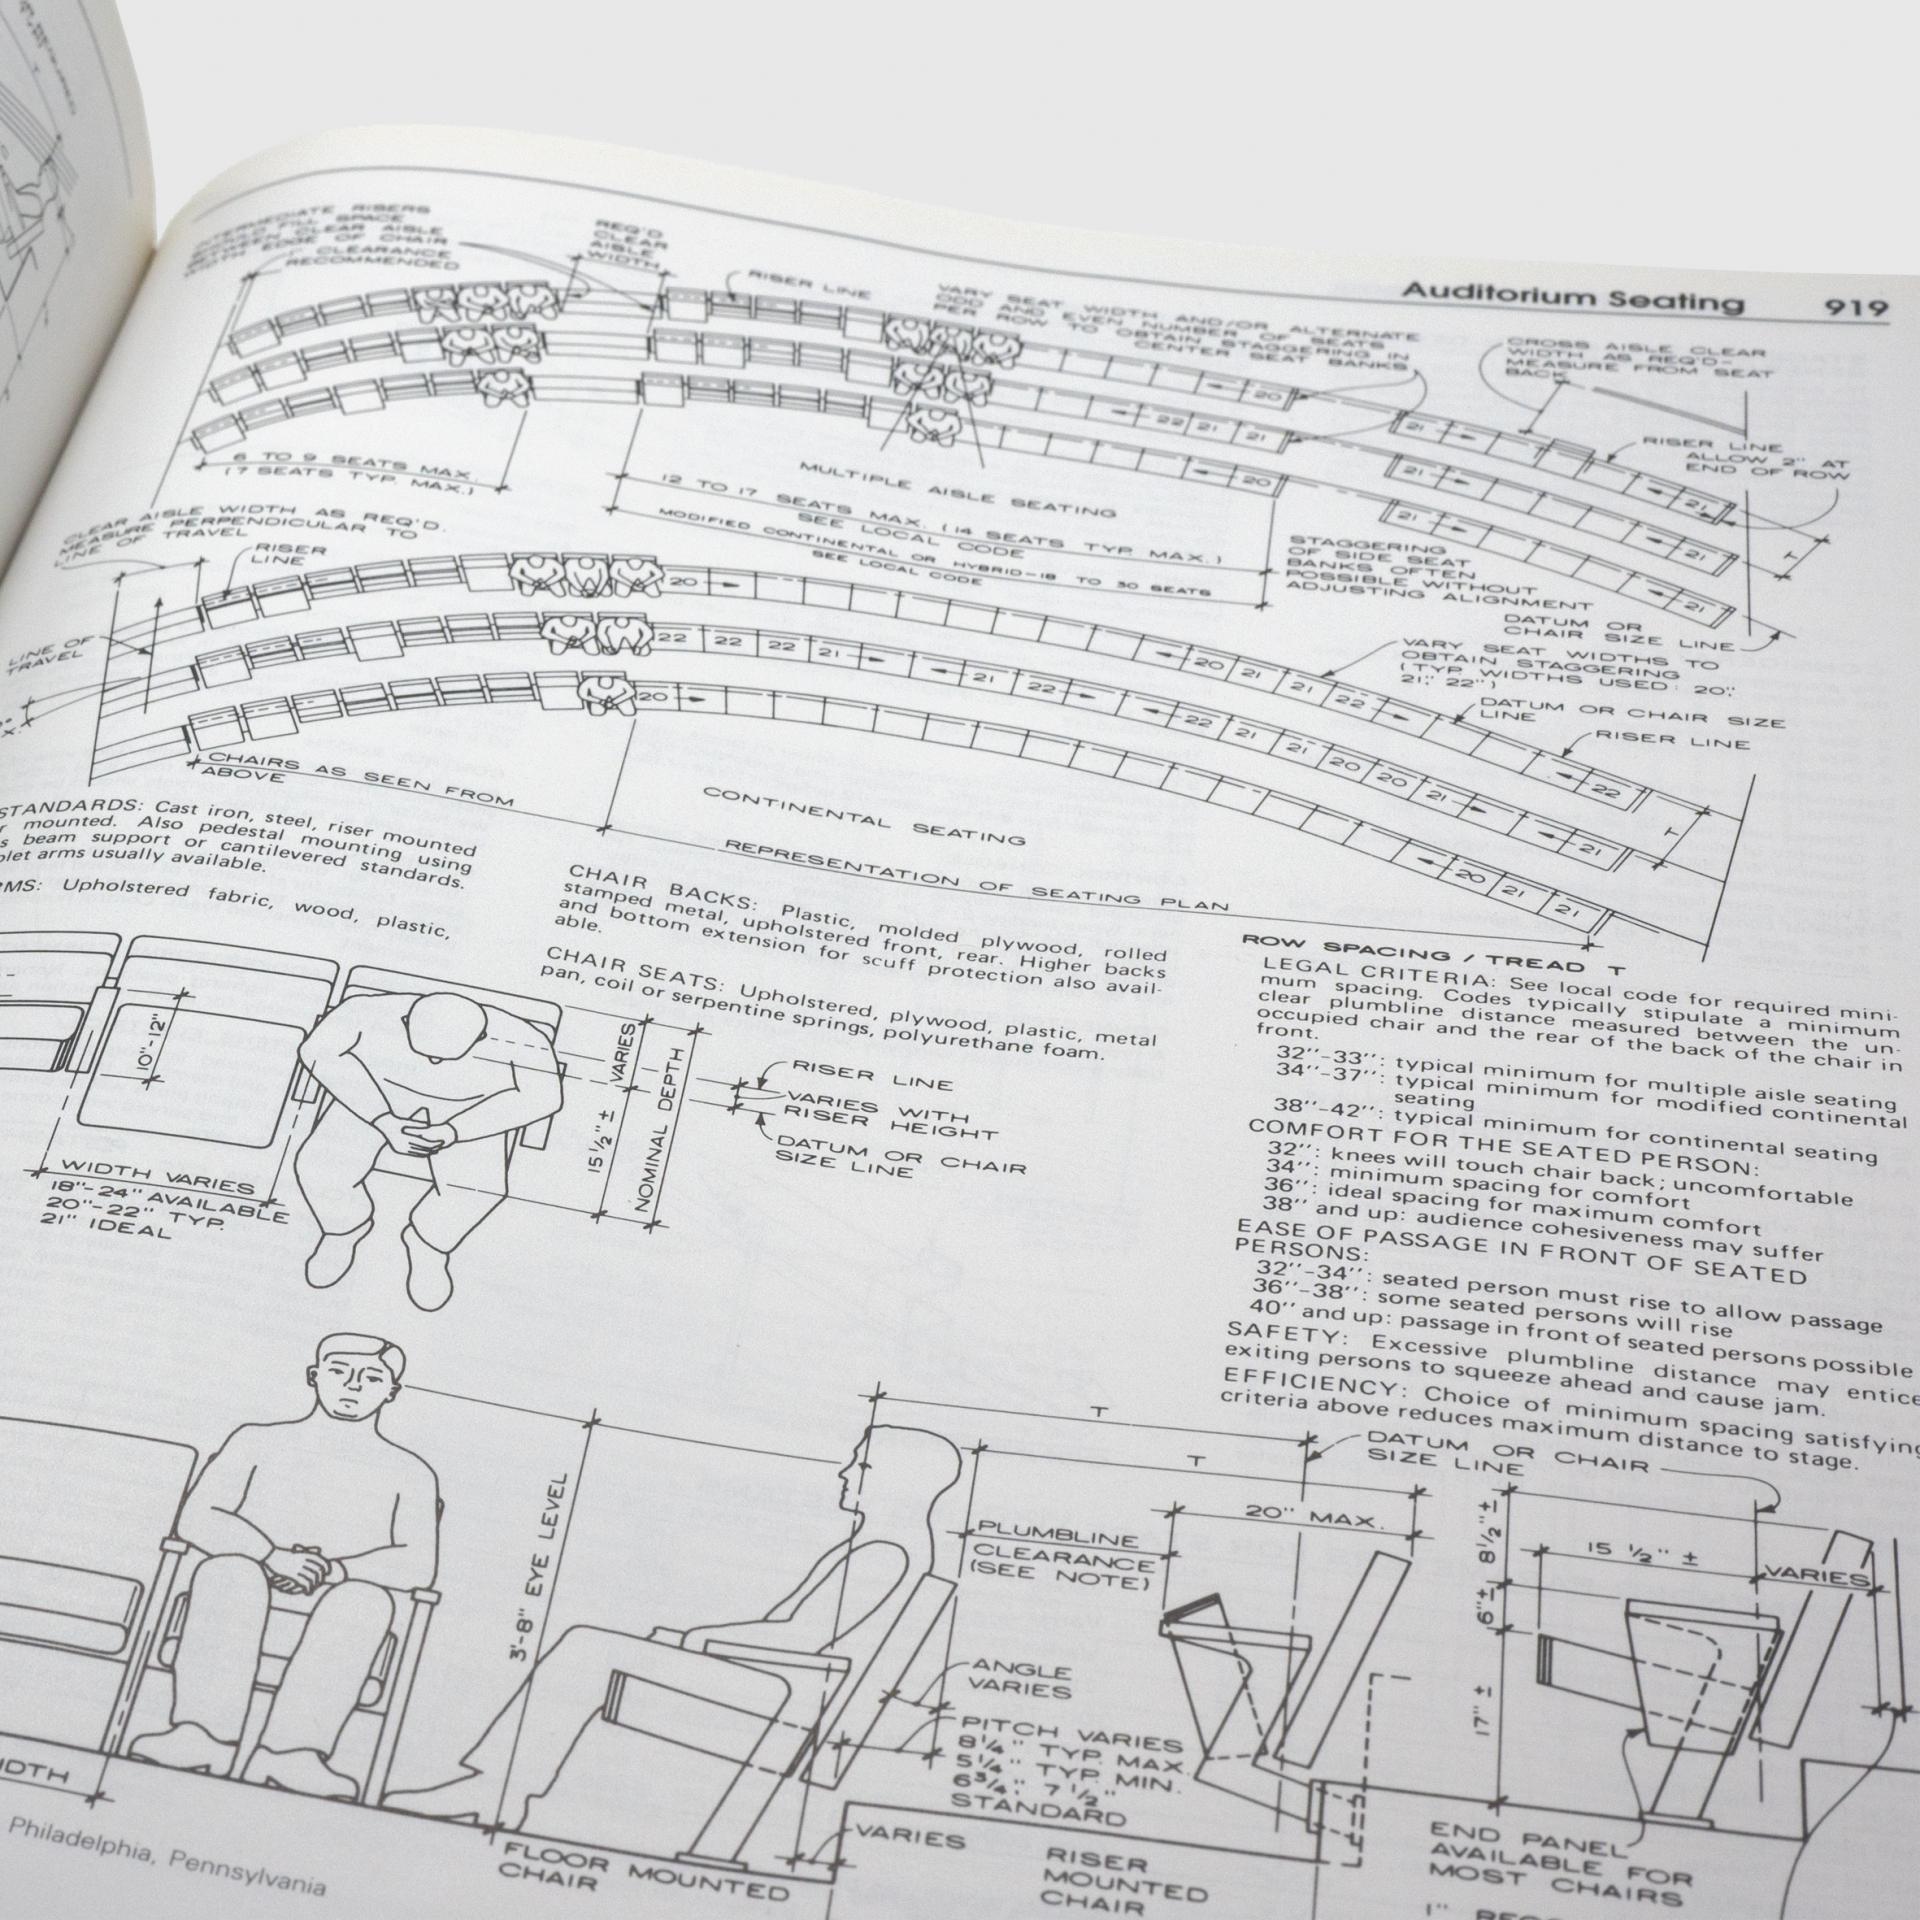 Auditorium Seating 919
INTERMEDIATE RISERS
SHOULD FILL SPACE
BETWEEN CLEAR AISLE
WIDTH EDGE OF CHAIR
1" CLEARANCE
RECOMMENDED
REQ'D
CLEAR
AISLE
WIDTH
RISER LINE
VARY SEAT WIDTH AND/OR ALTERNATE
ODD AND EVEN NUMBER OF SEATS
PER ROW TO OBTAIN STAGGERING IN
CENTER SEAT BANKS
CROSS AISLE CLEAR
WIDTH AS REQ'D-
MEASURE FROM SEAT
BACK
20
22 21 21
20
21
21
21
21
21
21
RISER LINE
ALLOW 2" AT
END OF ROW
T
6 TO 9 SEATS MAX.
(7 SEATS TYP. MAX.)
MULTIPLE AISLE SEATING
12 TO 17 SEATS MAX. (14 SEATS TYP. MAX.)
SEE LOCAL CODE
MODIFIED CONTINENTAL OR HYBRID-18 TO 30 SEATS
SEE LOCAL CODE
STAGGERING
OF SIDE SEAT
BANKS OFTEN
POSSIBLE WITHOUT
ADJUSTING ALIGNMENT
DATUM OR
CHAIR SIZE LINE
CLEAR AISLE WIDTH AS REQ'D.
MEASURE PERPENDICULAR TO
LINE OF TRAVEL
RISER
LINE
LINE OF
TRAVEL
20
20 21 21 22
22
22 22 22 21
21 22
22 21 21 20 20 21
21
20
20 21 21
VARY SEAT WIDTHS TO
OBTAIN STAGGERING
(TYP. WIDTHS USED: 20",
21", 22")
DATUM OR CHAIR SIZE
LINE
RISER LINE
T
CHAIRS AS SEEN FROM
ABOVE
CONTINENTAL SEATING
REPRESENTATION OF SEATING PLAN
STANDARDS: Cast iron, steel, riser mounted
mounted. Also pedestal mounting using
beam support or cantilevered standards.
arms usually available.
Upholstered fabric, wood, plastic,
CHAIR BACKS: Plastic, molded plywood, rolled
stamped metal, upholstered front, rear. Higher backs
and bottom extension for scuff protection also avail-
able.
CHAIR SEATS: Upholstered, plywood, plastic, metal
pan, coil or serpentine springs, polyurethane foam.
ROW SPACING / TREAD T
LEGAL CRITERIA: See local code for required mini-
mum spacing. Codes typically stipulate a minimum
clear plumbline distance measured between the un-
occupied chair and the rear of the back of the chair in
front.
32''-33'': typical minimum for multiple aisle seating
34''-37'': typical minimum for modified continental
seating
38''-42'': typical minimum for continental seating
COMFORT FOR THE SEATED PERSON:
32'': knees will touch chair back; uncomfortable
34'': minimum spacing for comfort
36'': ideal spacing for maximum comfort
38'' and up: audience cohesiveness may suffer
EASE OF PASSAGE IN FRONT OF SEATED
PERSONS:
32''-34'': seated person must rise to allow passage
36''-38'': some seated persons will rise
40'' and up: passage in front of seated persons possible
SAFETY: Excessive plumbline distance may entice
exiting persons to squeeze ahead and cause jam.
EFFICIENCY: Choice of minimum spacing satisfying
criteria above reduces maximum distance to stage.
10"-12"
WIDTH VARIES
18"-24" AVAILABLE
20"-22" TYP.
21" IDEAL
VARIES
15 1/2" ±
NOMINAL DEPTH
RISER LINE
VARIES WITH
RISER HEIGHT
DATUM OR CHAIR
SIZE LINE
3'-8" EYE LEVEL
T
T
DATUM OR CHAIR
SIZE LINE
20" MAX.
PLUMBLINE
CLEARANCE
(SEE NOTE)
8 1/2" ±
6" ±
17" ±
15 1/2" ±
VARIES
ANGLE
VARIES
PITCH VARIES
8 1/4" TYP. MAX.
5 1/4" TYP. MIN.
6 3/4", 7 1/2"
STANDARD
VARIES
FLOOR MOUNTED
CHAIR
RISER
MOUNTED
CHAIR
END PANEL
AVAILABLE FOR
MOST CHAIRS
1"
Philadelphia, Pennsylvania